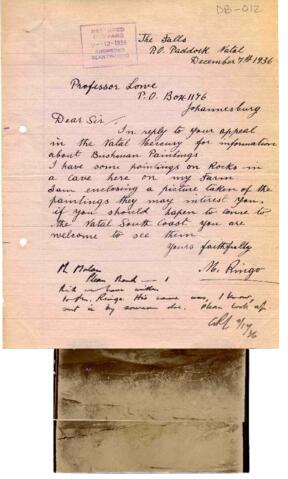 DB-012
9-12-1936
ANSWERED
The Falls
P.O. Paddock Natal
December 7th 1936
Professor Lowe
P.O. Box 1176
Johannesburg
Dear Sir
In reply to your appeal
in the Natal Mercury for information
about Bushman Paintings
I have some paintings on Rocks in
a cave here on my Farm
I am enclosing a picture taken of the
paintings they may interest you,
if you should hapen to come to
the Natal South Coast you are
welcome to see them
Yours faithfully
M. Ringo
Please
I
think we have written
to Mr. Ringo. His cave was, I know,
sent in by someone else. Please look up.